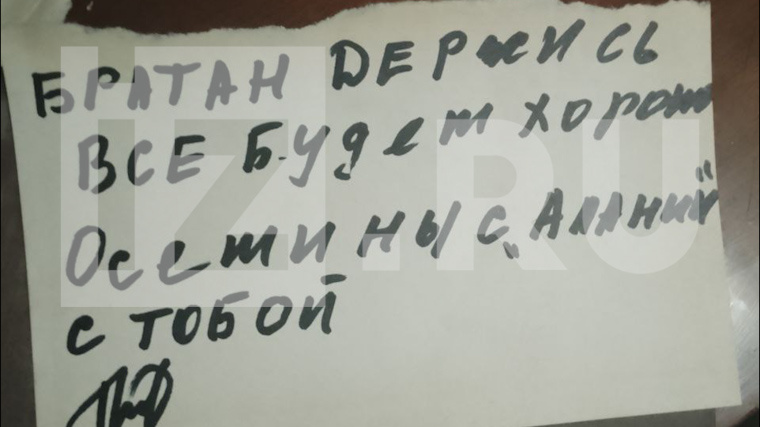 БРАТАН ДЕРЖИСЬ
ВСЕ БУДЕТ ХОРОШ
ОСЕТИНЫ С „АЛАНИИ"
С ТОБОЙ
IZ.RU